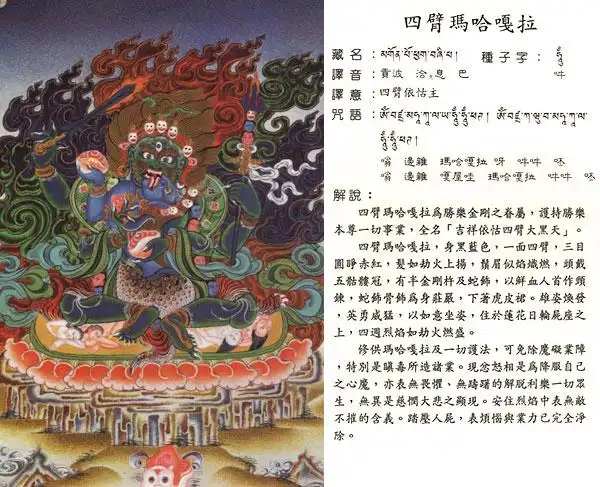 四臂瑪哈嘎拉
藏名：མགོན་པོ་ཕྱག་བཞི་པ། 種子字：ཧཱུྃ
譯音：貢波 洽 息 巴 吽
譯意：四臂依怙主
咒語：ༀ་བཛྲ་མཧཱ་ཀཱ་ལ་ཡ་ཧཱུྃ་ཧཱུྃ་ཕཊ།
ཧཱུྃ་ཧཱུྃ་ཕཊ།
嗡 邊雜 瑪哈嘎拉 呀 吽吽 呸
嗡 邊雜 嘎屋哇 瑪哈嘎拉 吽吽 呸
解說：
四臂瑪哈嘎拉為勝樂金剛之眷屬，護持勝樂
本尊一切事業，全名「吉祥依怙四臂大黑天」。
四臂瑪哈嘎拉，身黑藍色，一面四臂，三目
圓睜赤紅，髮如劫火上揚，鬚眉似焰熾燃，頭戴
五骷髏冠，有半金剛杵及蛇飾，以鮮血人首作頸
鍊，蛇飾骨飾為身莊嚴，下著虎皮裙。雄姿煥發
，英勇威猛，以如意坐姿，住於蓮花日輪屍座之
上，四週烈焰如劫火燃盛。
修供瑪哈嘎拉及一切護法，可免除魔礙業障
，特別是瞋毒所造諸業。現忿怒相是為降服自己
之心魔，亦表無畏懼、無躊躇的解脫利樂一切眾
生，無異是慈憫大悲之顯現。安住烈焰中表無敵
不摧的含義。踏壓人屍，表煩惱與業力已完全淨
除。